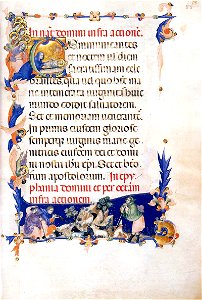 In nat domini infra actione.
Communicantes
et noctem vel diem
sacratissimam cele
brantes qua vel quo beate ma
rie intemerata virginitas huic
mundo edidit salvatorem.
Set et memoriam venerantes
In primis eiusdem gloriose
semper virginis marie ge
nitricis eiusdem dei et domi
ni nostri ihu xpi. Set et bto
rum apostolorum. In epy
phania domini et per octam
infra actionem